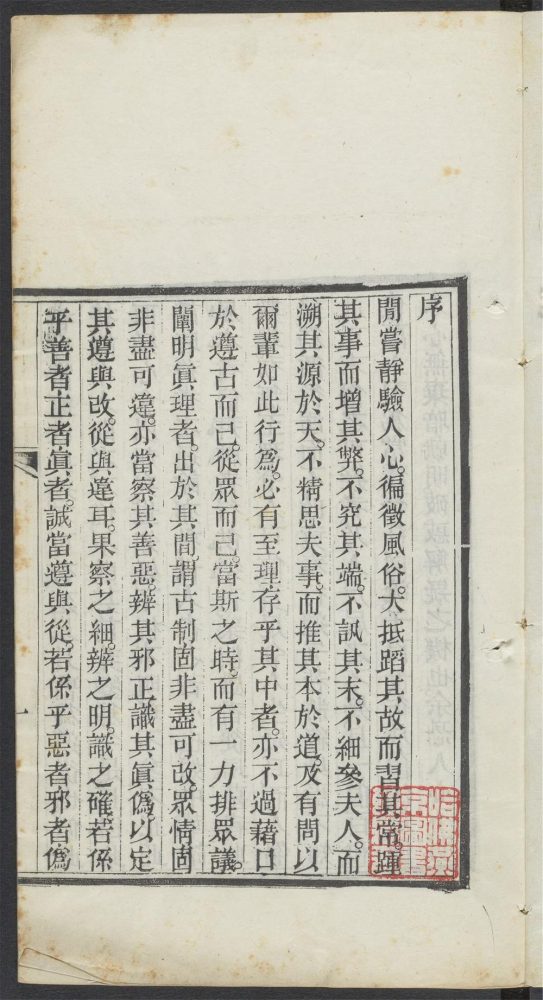 序
閒嘗靜驗人心。徧徵風俗。大抵蹈其故而習其常。踵
其事而增其弊。不究其端。不訊其末。不細參夫人。而
溯其源於天。不精思夫事。而推其本於道。及有問以
爾輩如此行爲。必有至理存乎其中者。亦不過藉口
於遵古而已。從眾而已。當斯之時。而有一力排眾議。
闡明眞理者。出於其間。謂古制固非盡可改。眾情固
非盡可違。亦當察其善惡。辨其邪正。識其眞僞。以定
其遵與改。從與違耳。果察之細。辨之明。識之確。若係
乎善者正者眞者。誠當遵與從。若係乎惡者邪者僞
一
哈佛燕
京圖書